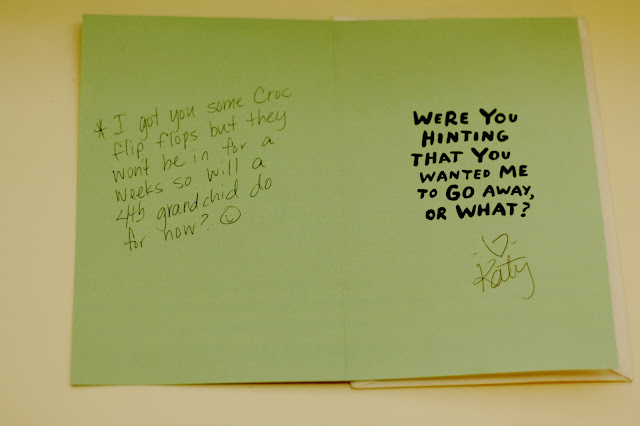 * I got you some Croc
flip flops but they
wont be in for a
weeks so will a
4th grandchid do
for now? ☺
WERE YOU
HINTING
THAT YOU
WANTED ME
TO GO AWAY,
OR WHAT?
♡
Katy